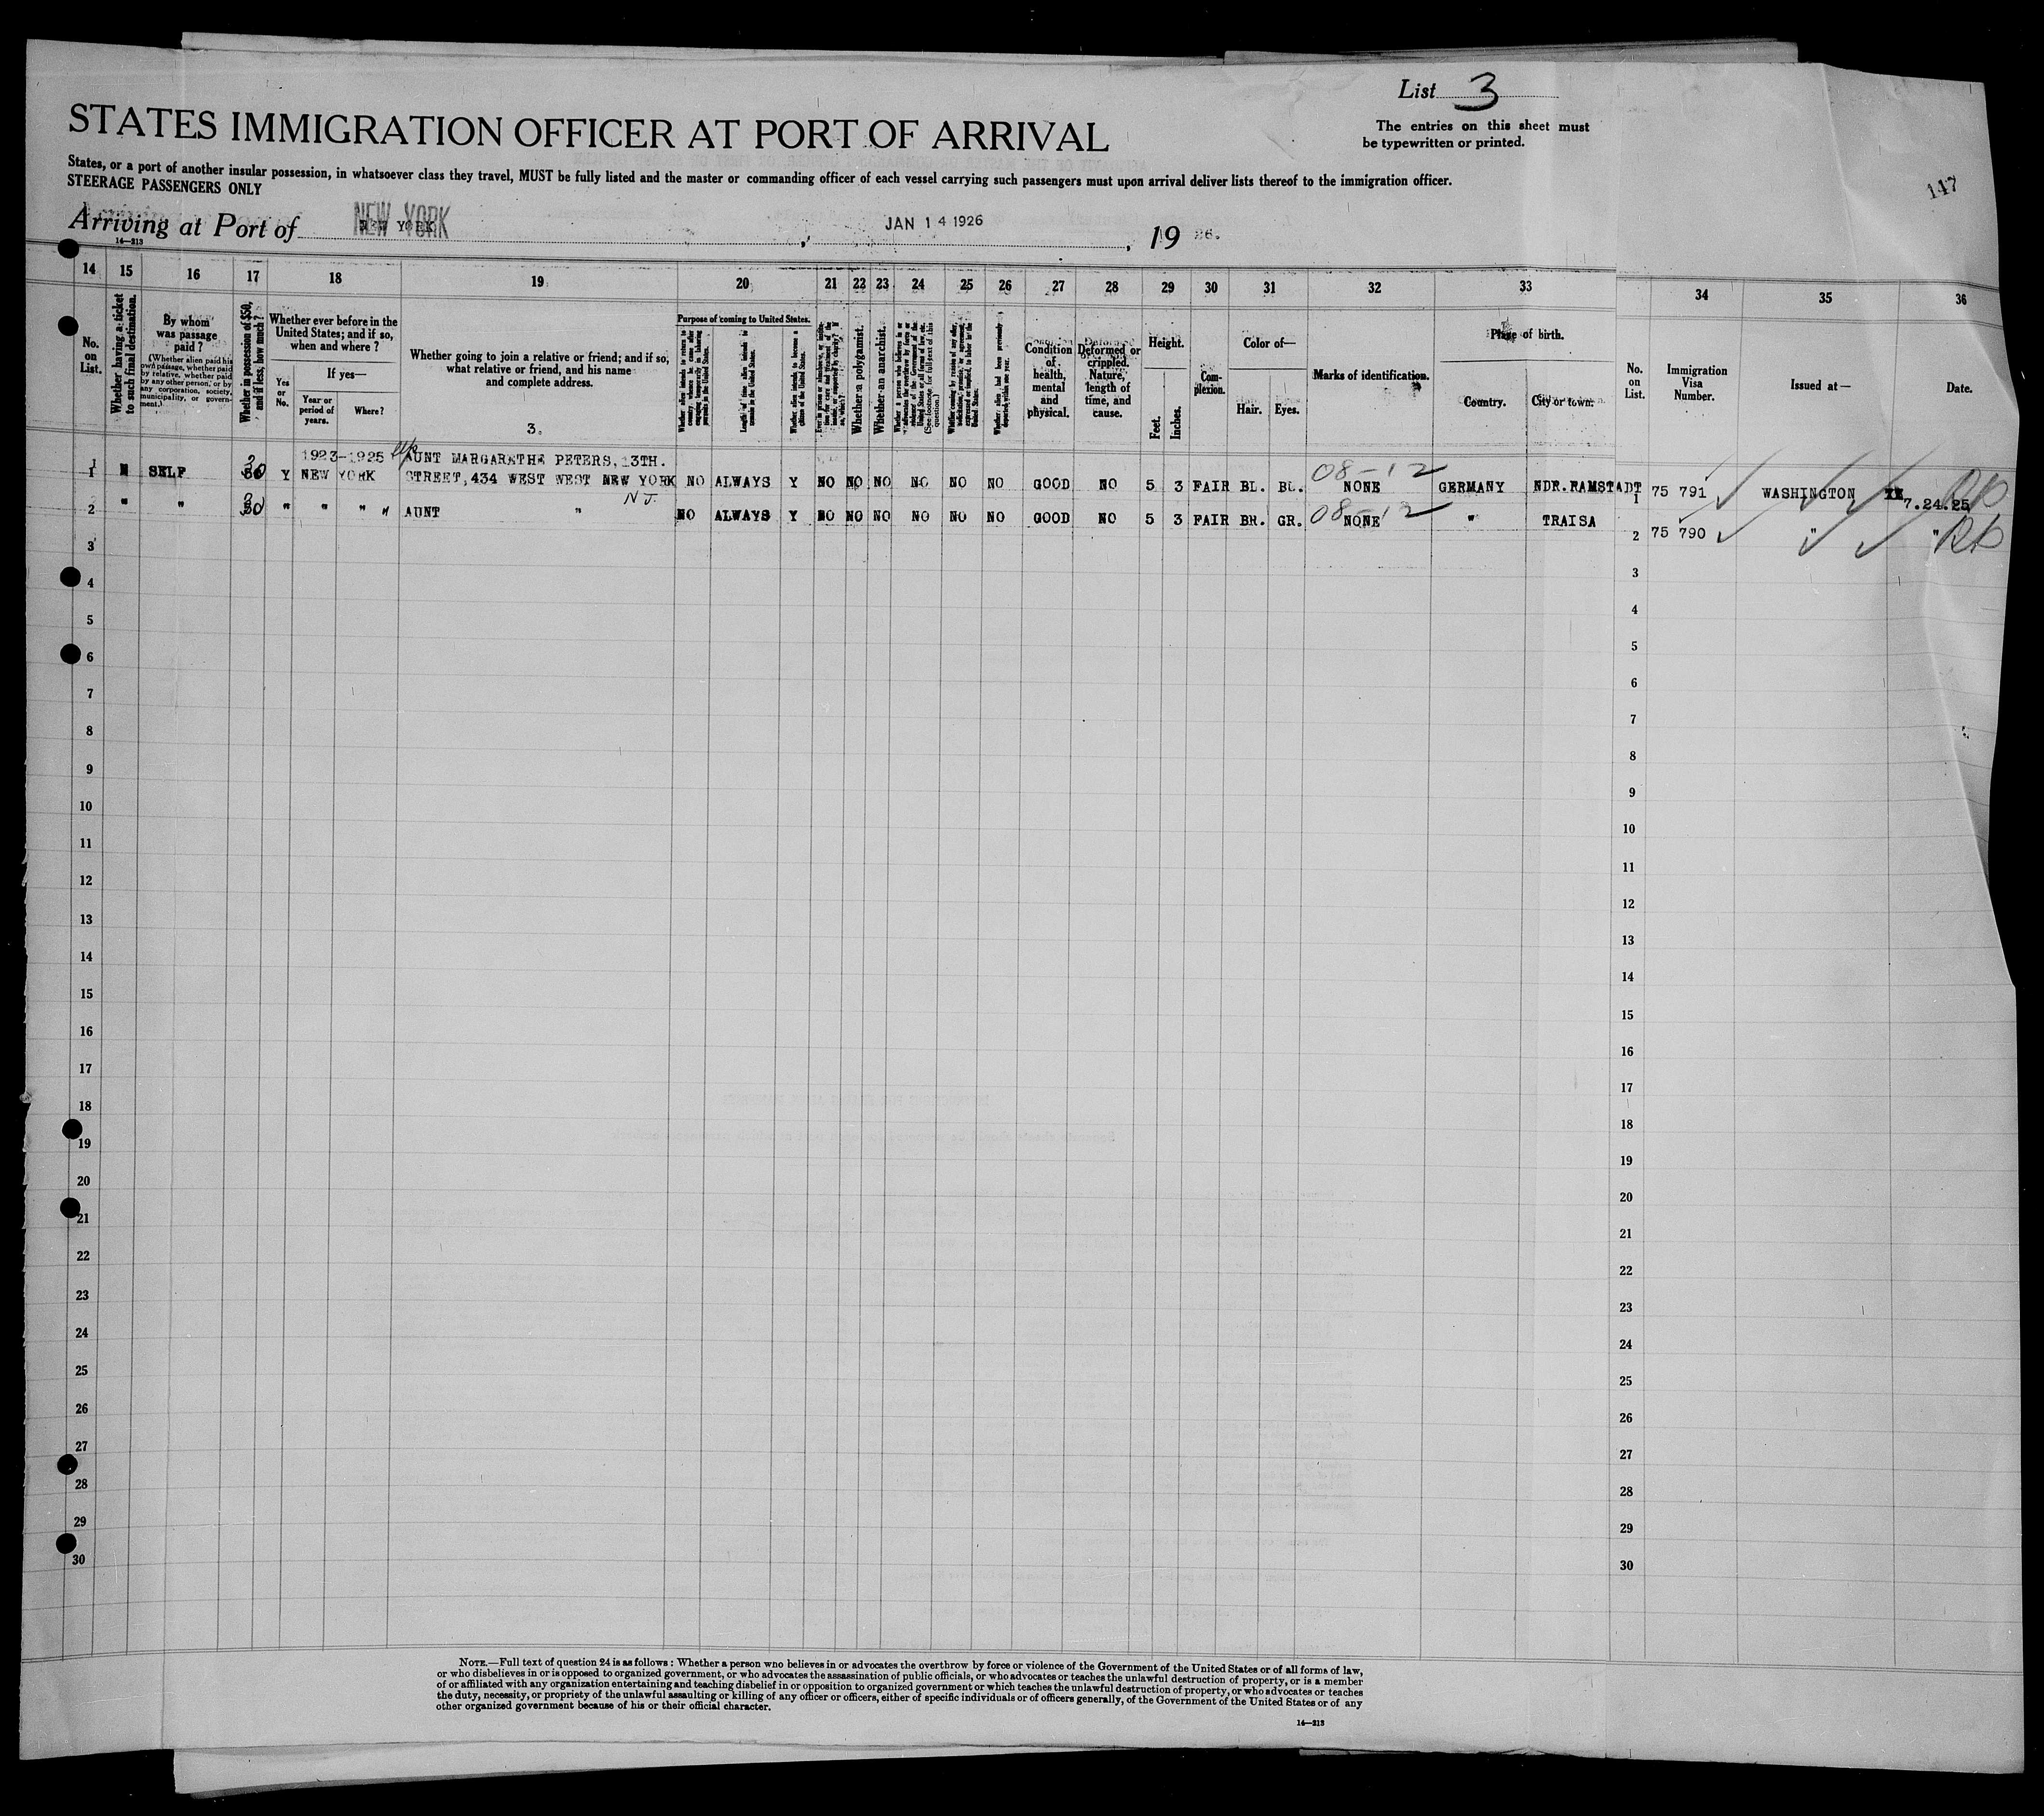 List 3
STATES IMMIGRATION OFFICER AT PORT OF ARRIVAL
The entries on this sheet must
be typewritten or printed.
States, or a port of another insular possession, in whatsoever class they travel, MUST be fully listed and the master or commanding officer of each vessel carrying such passengers must upon arrival deliver lists thereof to the immigration officer.
STEERAGE PASSENGERS ONLY
147
Arriving at Port of NEW YORK , JAN 14 1926 , 19 26.
14—213
14 15 16 17 18 19 20 21 22 23 24 25 26 27 28 29 30 31 32 33 34 35 36
No. on List.
Whether having a ticket to such final destination.
By whom was passage paid?
(Whether alien paid his own passage, whether paid by relative, whether paid by any other person, or by any corporation, society, municipality, or government.)
Whether in possession of $50, and if less, how much?
Whether ever before in the United States; and if so, when and where?
Yes or No.
If yes—
Year or period of years.
Where?
Whether going to join a relative or friend; and if so, what relative or friend, and his name and complete address.
3.
Purpose of coming to United States.
Whether alien intends to return to country whence he came after engaging temporarily in laboring pursuits in the United States.
Length of time alien intends to remain in the United States.
Whether alien intends to become a citizen of the United States.
Whether a polygamist.
Whether an anarchist.
(See footnote for full text of this question.)
Whether alien had been previously deported within one year.
Condition of health, mental and physical.
Deformed or crippled. Nature, length of time, and cause.
Height.
Feet.
Inches.
Complexion.
Color of—
Hair.
Eyes.
Marks of identification.
Place of birth.
Country.
City or town.
No. on List.
Immigration Visa Number.
Issued at—
Date.
1923-1925 AUNT MARGARETHE PETERS, 13TH. 08-12
1 N SELF 30 Y NEW YORK STREET,434 WEST WEST NEW YORK NO ALWAYS Y NO NO NO NO NO NO GOOD NO 5 3 FAIR BL. BL. NONE GERMANY NDR.RAMSTADT 1 75 791 WASHINGTON 7.24.25
N J. 08-12
2 " " 30 " " " " AUNT " NO ALWAYS Y NO NO NO NO NO NO GOOD NO 5 3 FAIR BR. GR. NONE " TRAISA 2 75 790 " "
3 3
4 4
5 5
6 6
7 7
8 8
9 9
10 10
11 11
12 12
13 13
14 14
15 15
16 16
17 17
18 18
19 19
20 20
21 21
22 22
23 23
24 24
25 25
26 26
27 27
28 28
29 29
30 30
NOTE.—Full text of question 24 is as follows: Whether a person who believes in or advocates the overthrow by force or violence of the Government of the United States or of all forms of law,
or who disbelieves in or is opposed to organized government, or who advocates the assassination of public officials, or who advocates or teaches the unlawful destruction of property, or is a member
of or affiliated with any organization entertaining and teaching disbelief in or opposition to organized government or which teaches the unlawful destruction of property, or who advocates or teaches
the duty, necessity, or propriety of the unlawful assaulting or killing of any officer or officers, either of specific individuals or of officers generally, of the Government of the United States or of any
other organized government because of his or their official character.
14—213